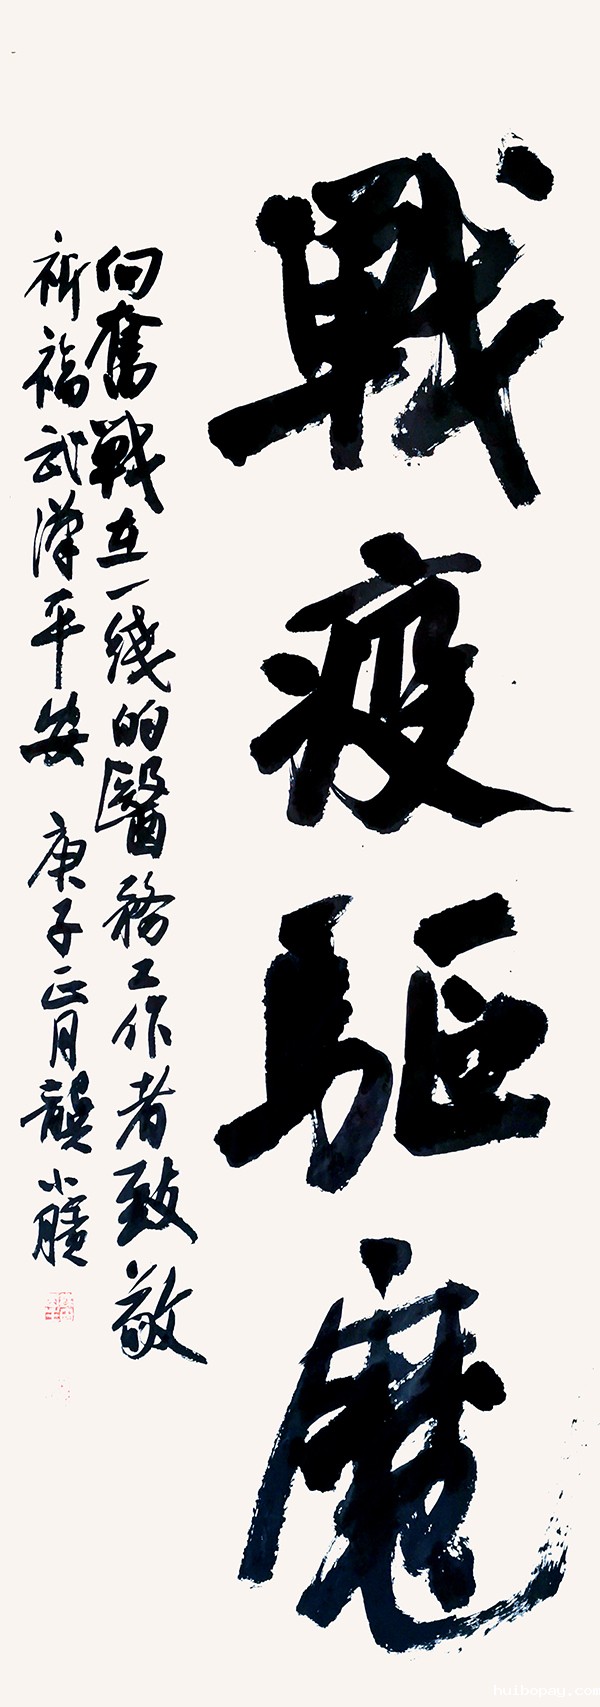 戰疫驅魔
向奮戰在一线的醫務工作者致敬
祈福武漢平安 庚子正月龔小膑
huibopay.com